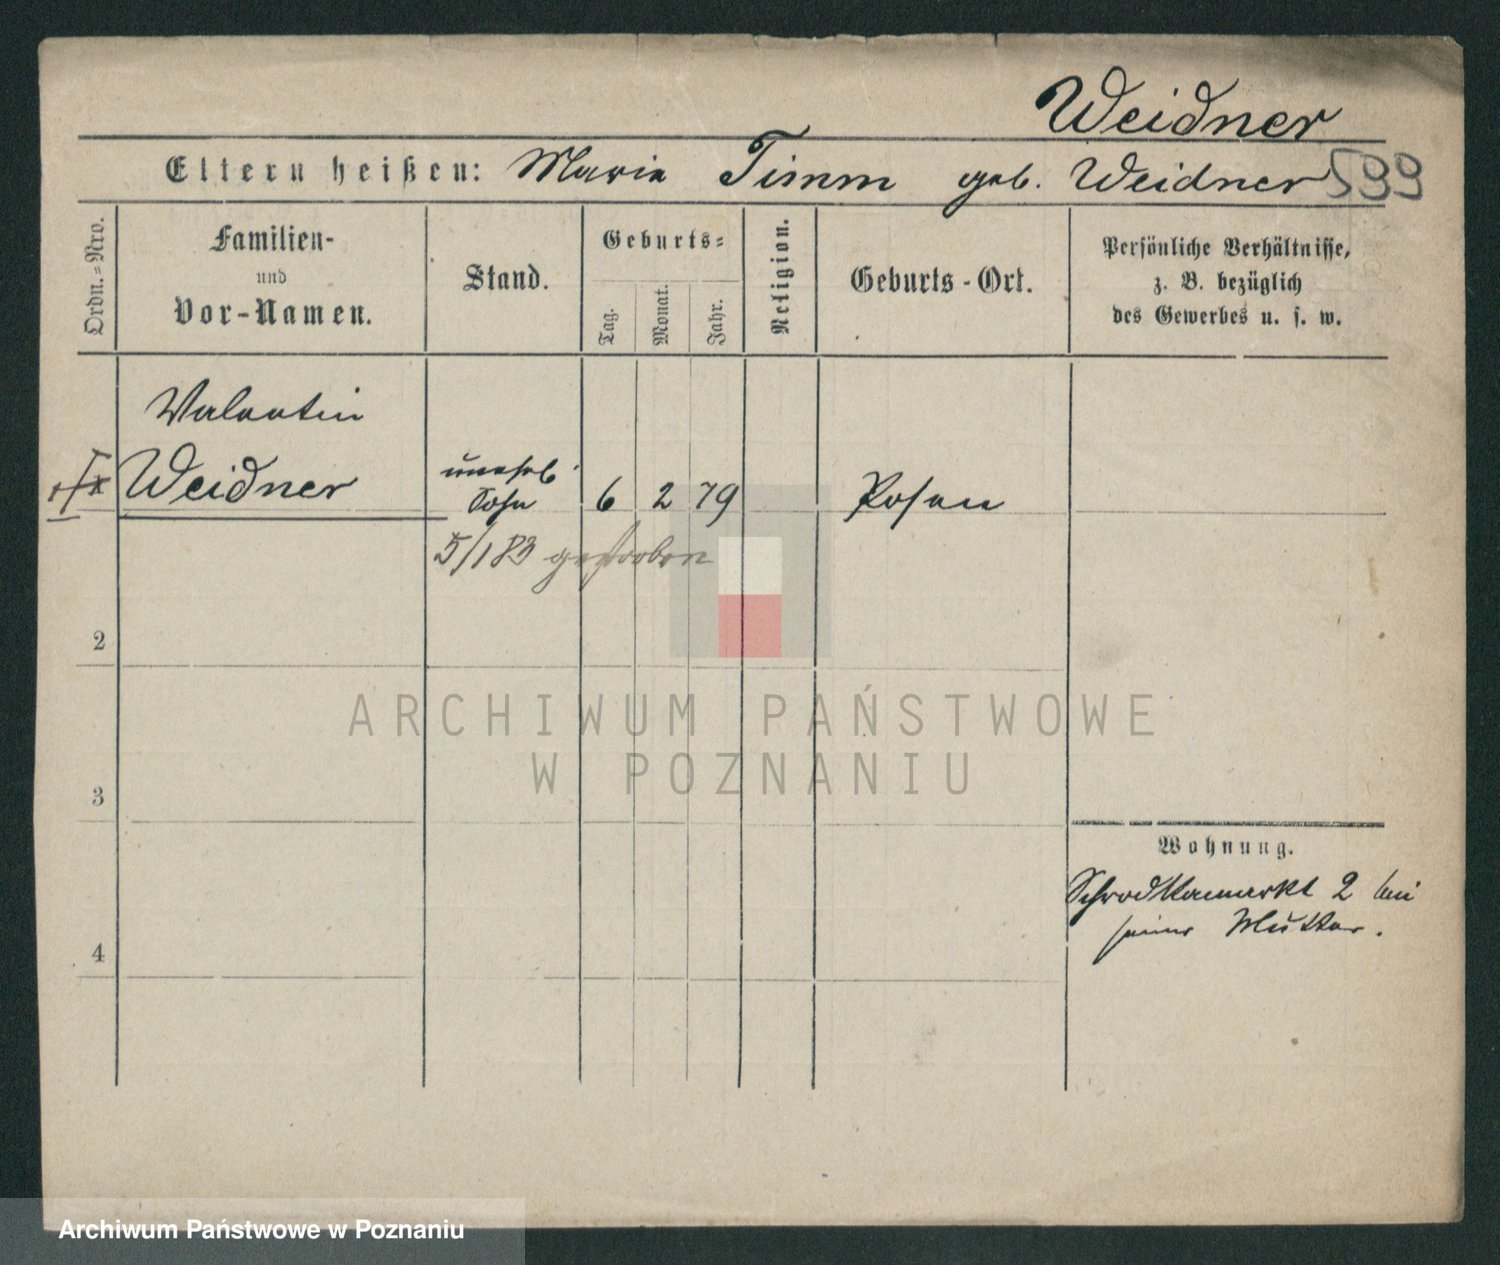 Weidner
Eltern heißen: Maria Timm geb. Weidner 599
Ordn.=Nro.
Familien-
und
Vor-Namen.
Stand.
Geburts=
Tag.
Monat.
Jahr.
Religion.
Geburts-Ort.
Persönliche Verhältnisse,
z. B. bezüglich
des Gewerbes u. s. w.
Valentin
Weidner
unehel.
Sohn
6 2 79
Posen
5/1 83 gestorben
2
3
4
Wohnung.
Schrodkamarkt 2 bei
seiner Mutter.
ARCHIWUM PAŃSTWOWE
W POZNANIU
Archiwum Państwowe w Poznaniu